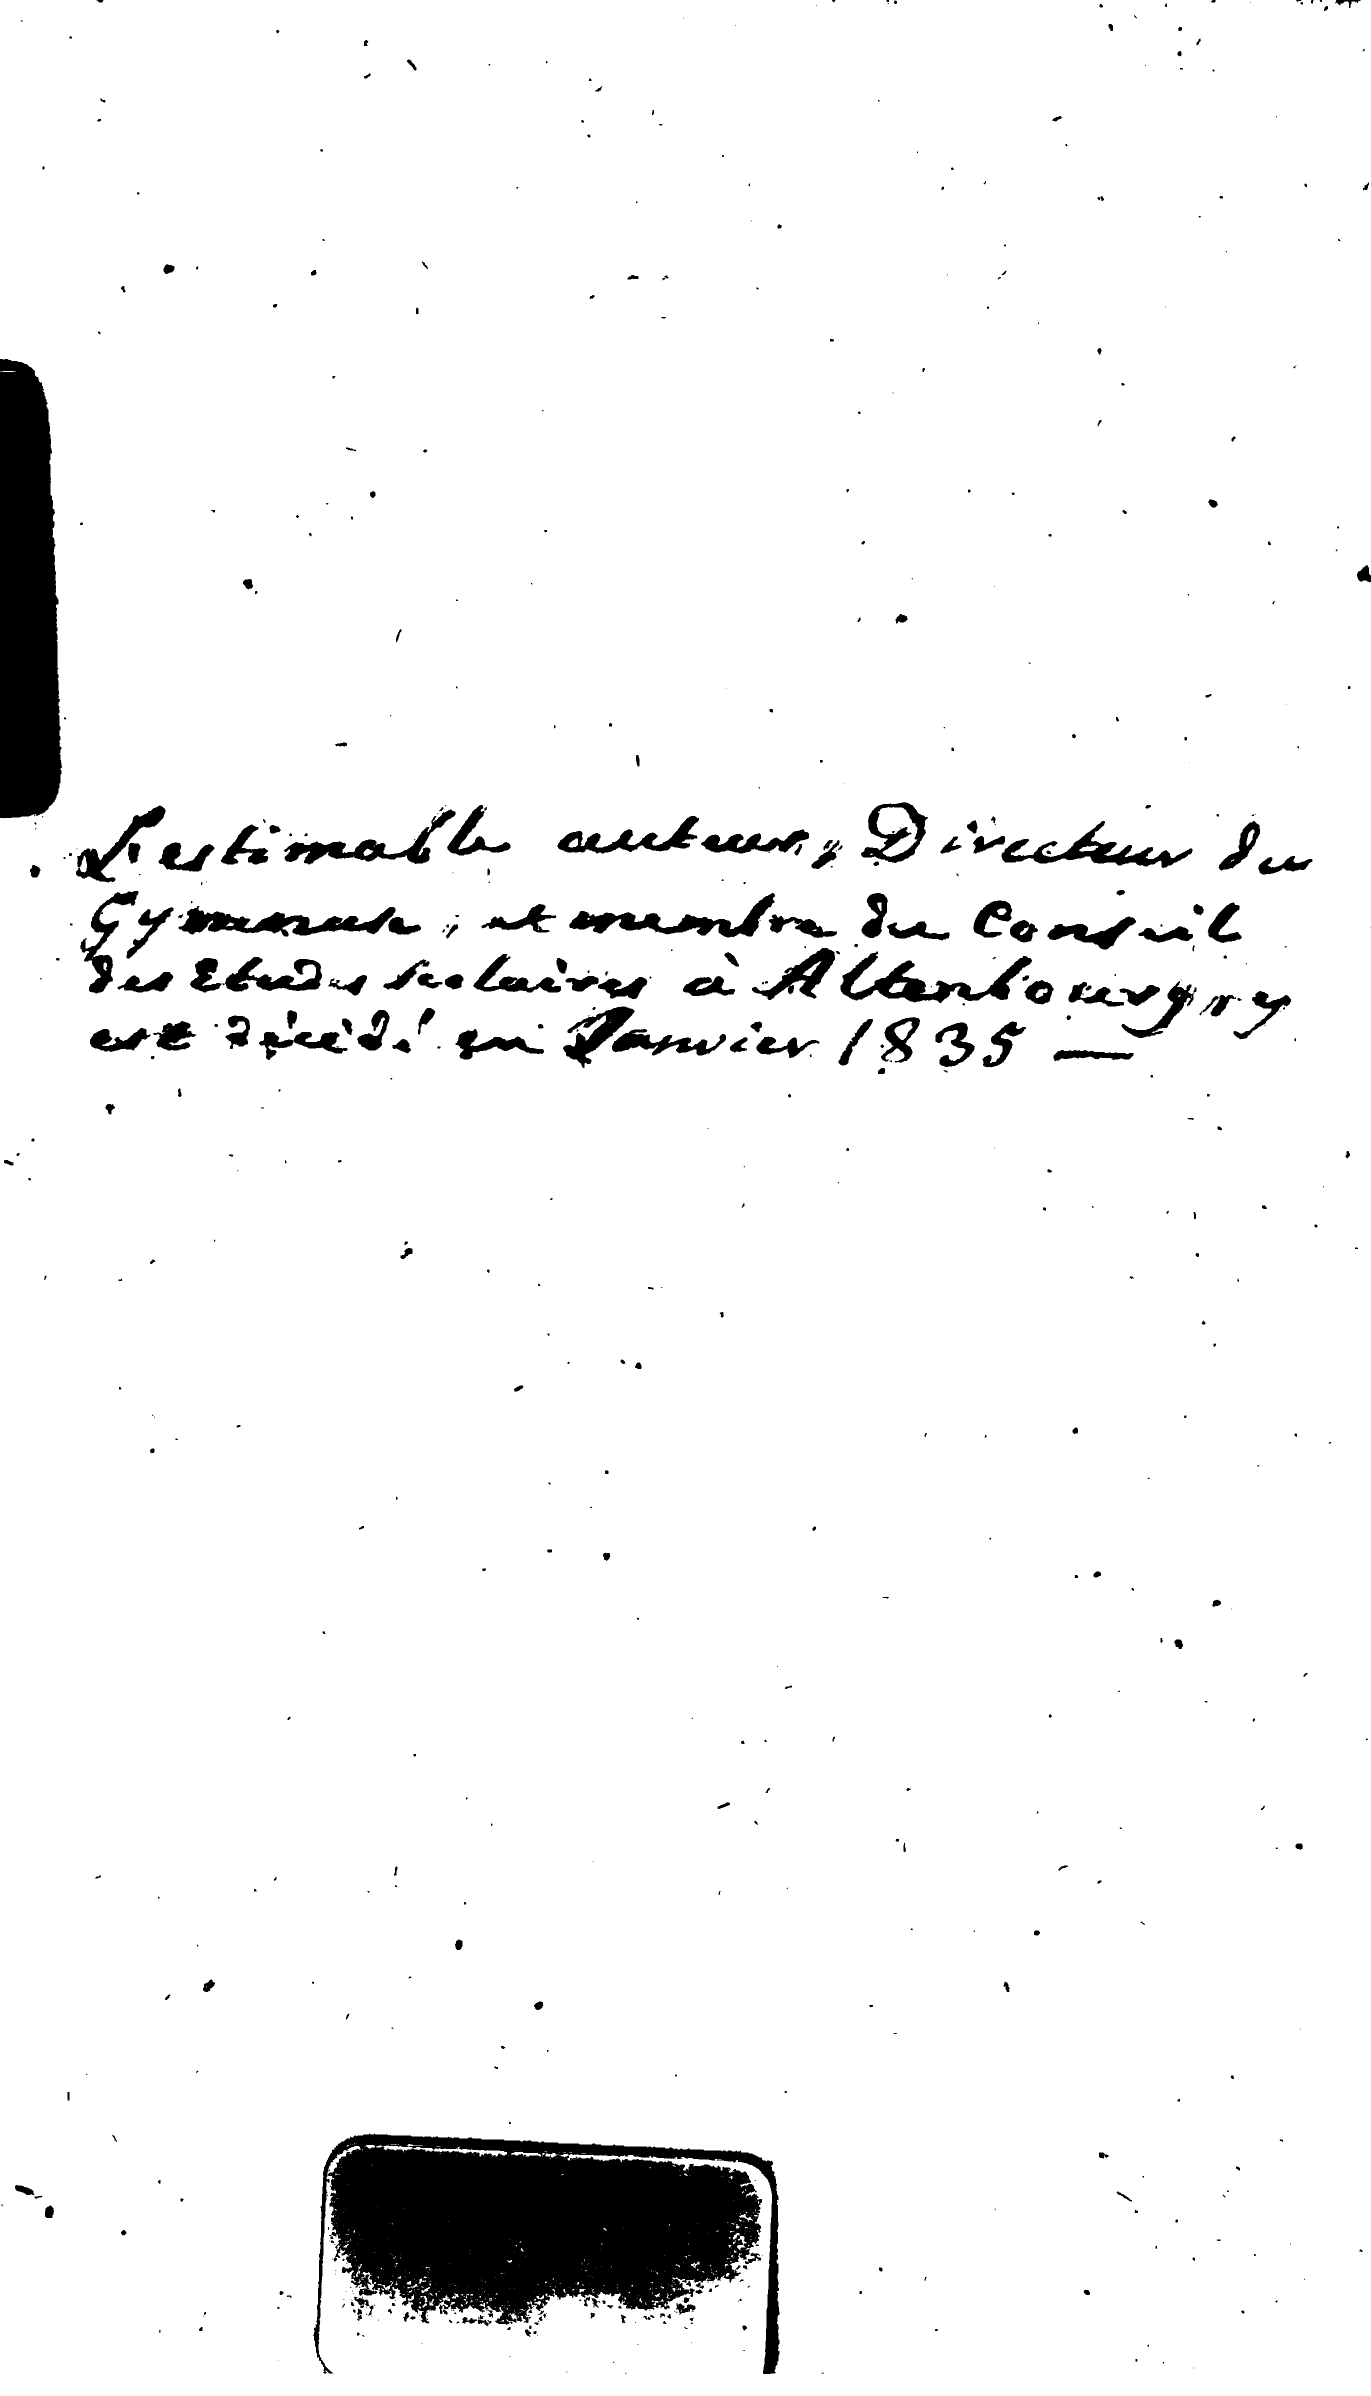 L'estimable auteur, Directeur du
Gymnase, et membre du Conseil
des Etudes scolaires à Altenbourg, y
est décédé en Janvier 1835 —